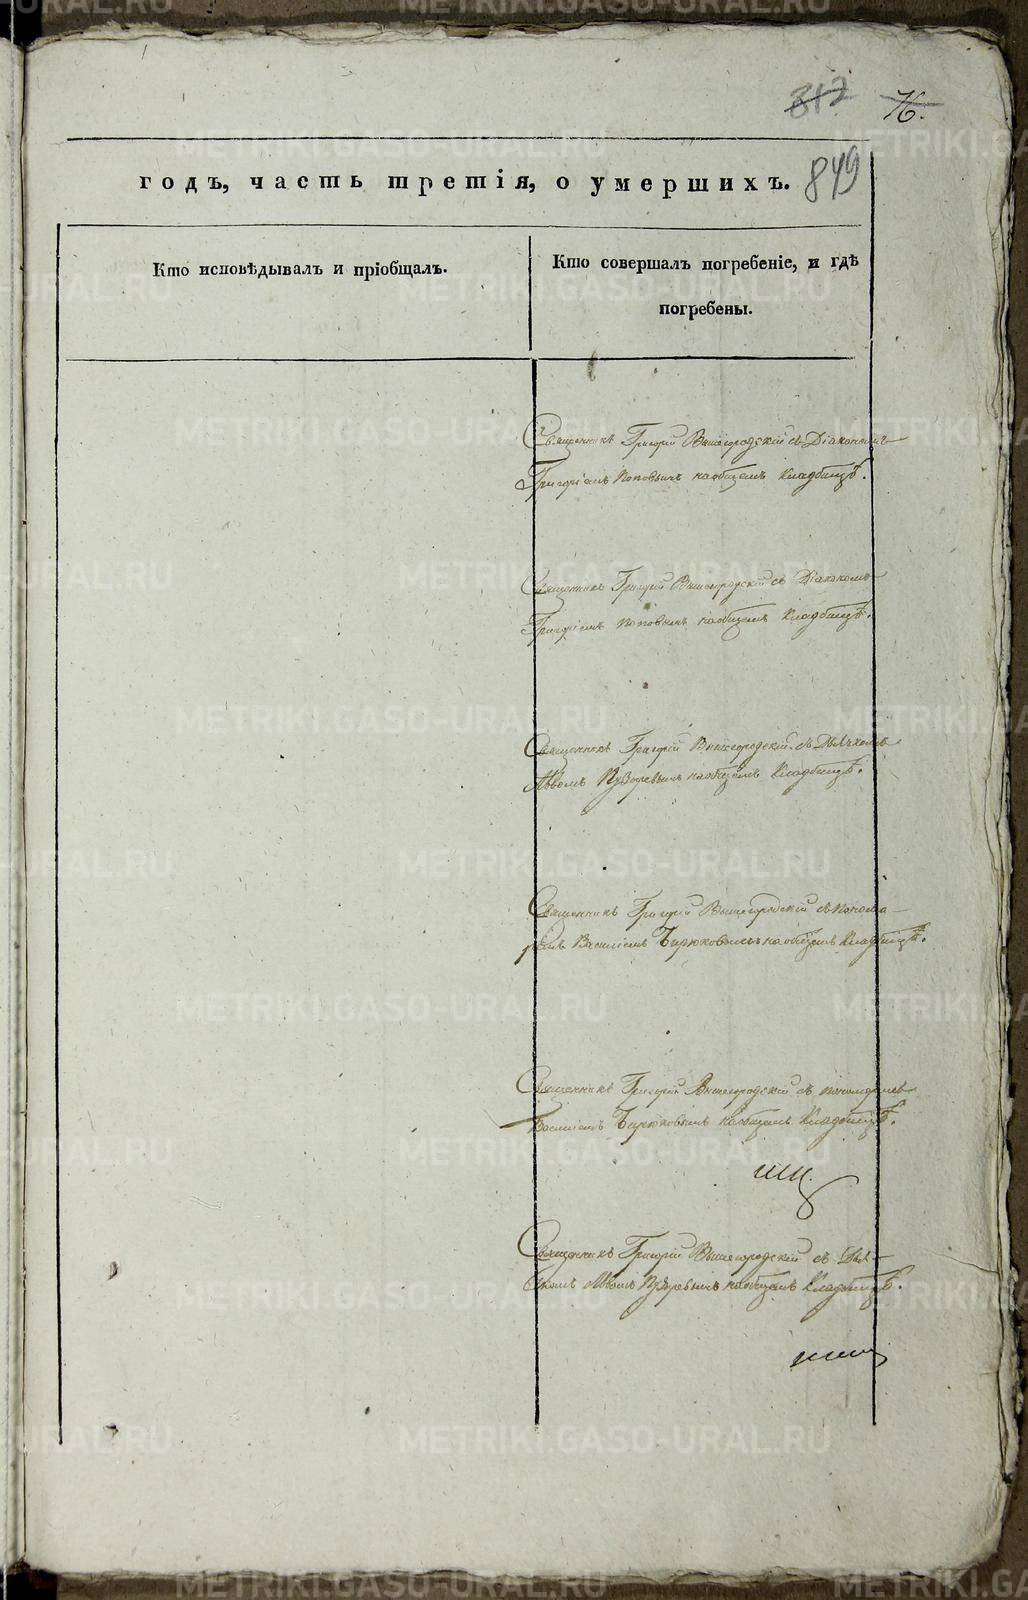 312 76.
849
годъ, часть третія, о умершихъ.
Кто исповѣдывалъ и пріобщалъ.
Кто совершалъ погребеніе, и гдѣ
погребены.
Священникъ Григорій Вышегородскій съ Діакономъ
Григоріемъ Поповымъ наобщемъ Кладбищѣ.
Священникъ Григорій Вышегородскій съ Діакономъ
Григоріемъ Поповымъ наобщемъ Кладбищѣ.
Священникъ Григорій Вышегородскій съ Дьячкомъ
наобщемъ Кладбищѣ.
Священникъ Григорій Вышегородскій съ Понома-
ремъ Василіемъ Бирюковымъ наобщемъ Кладбищѣ.
Священникъ Григорій Вышегородскій съ пономаремъ
Василіемъ Бирюковымъ наобщемъ Кладбищѣ.
Священникъ Григорій Вышегородскій съ Дья-
чкомъ наобщемъ Кладбищѣ.
METRIKI.GASO-URAL.RU